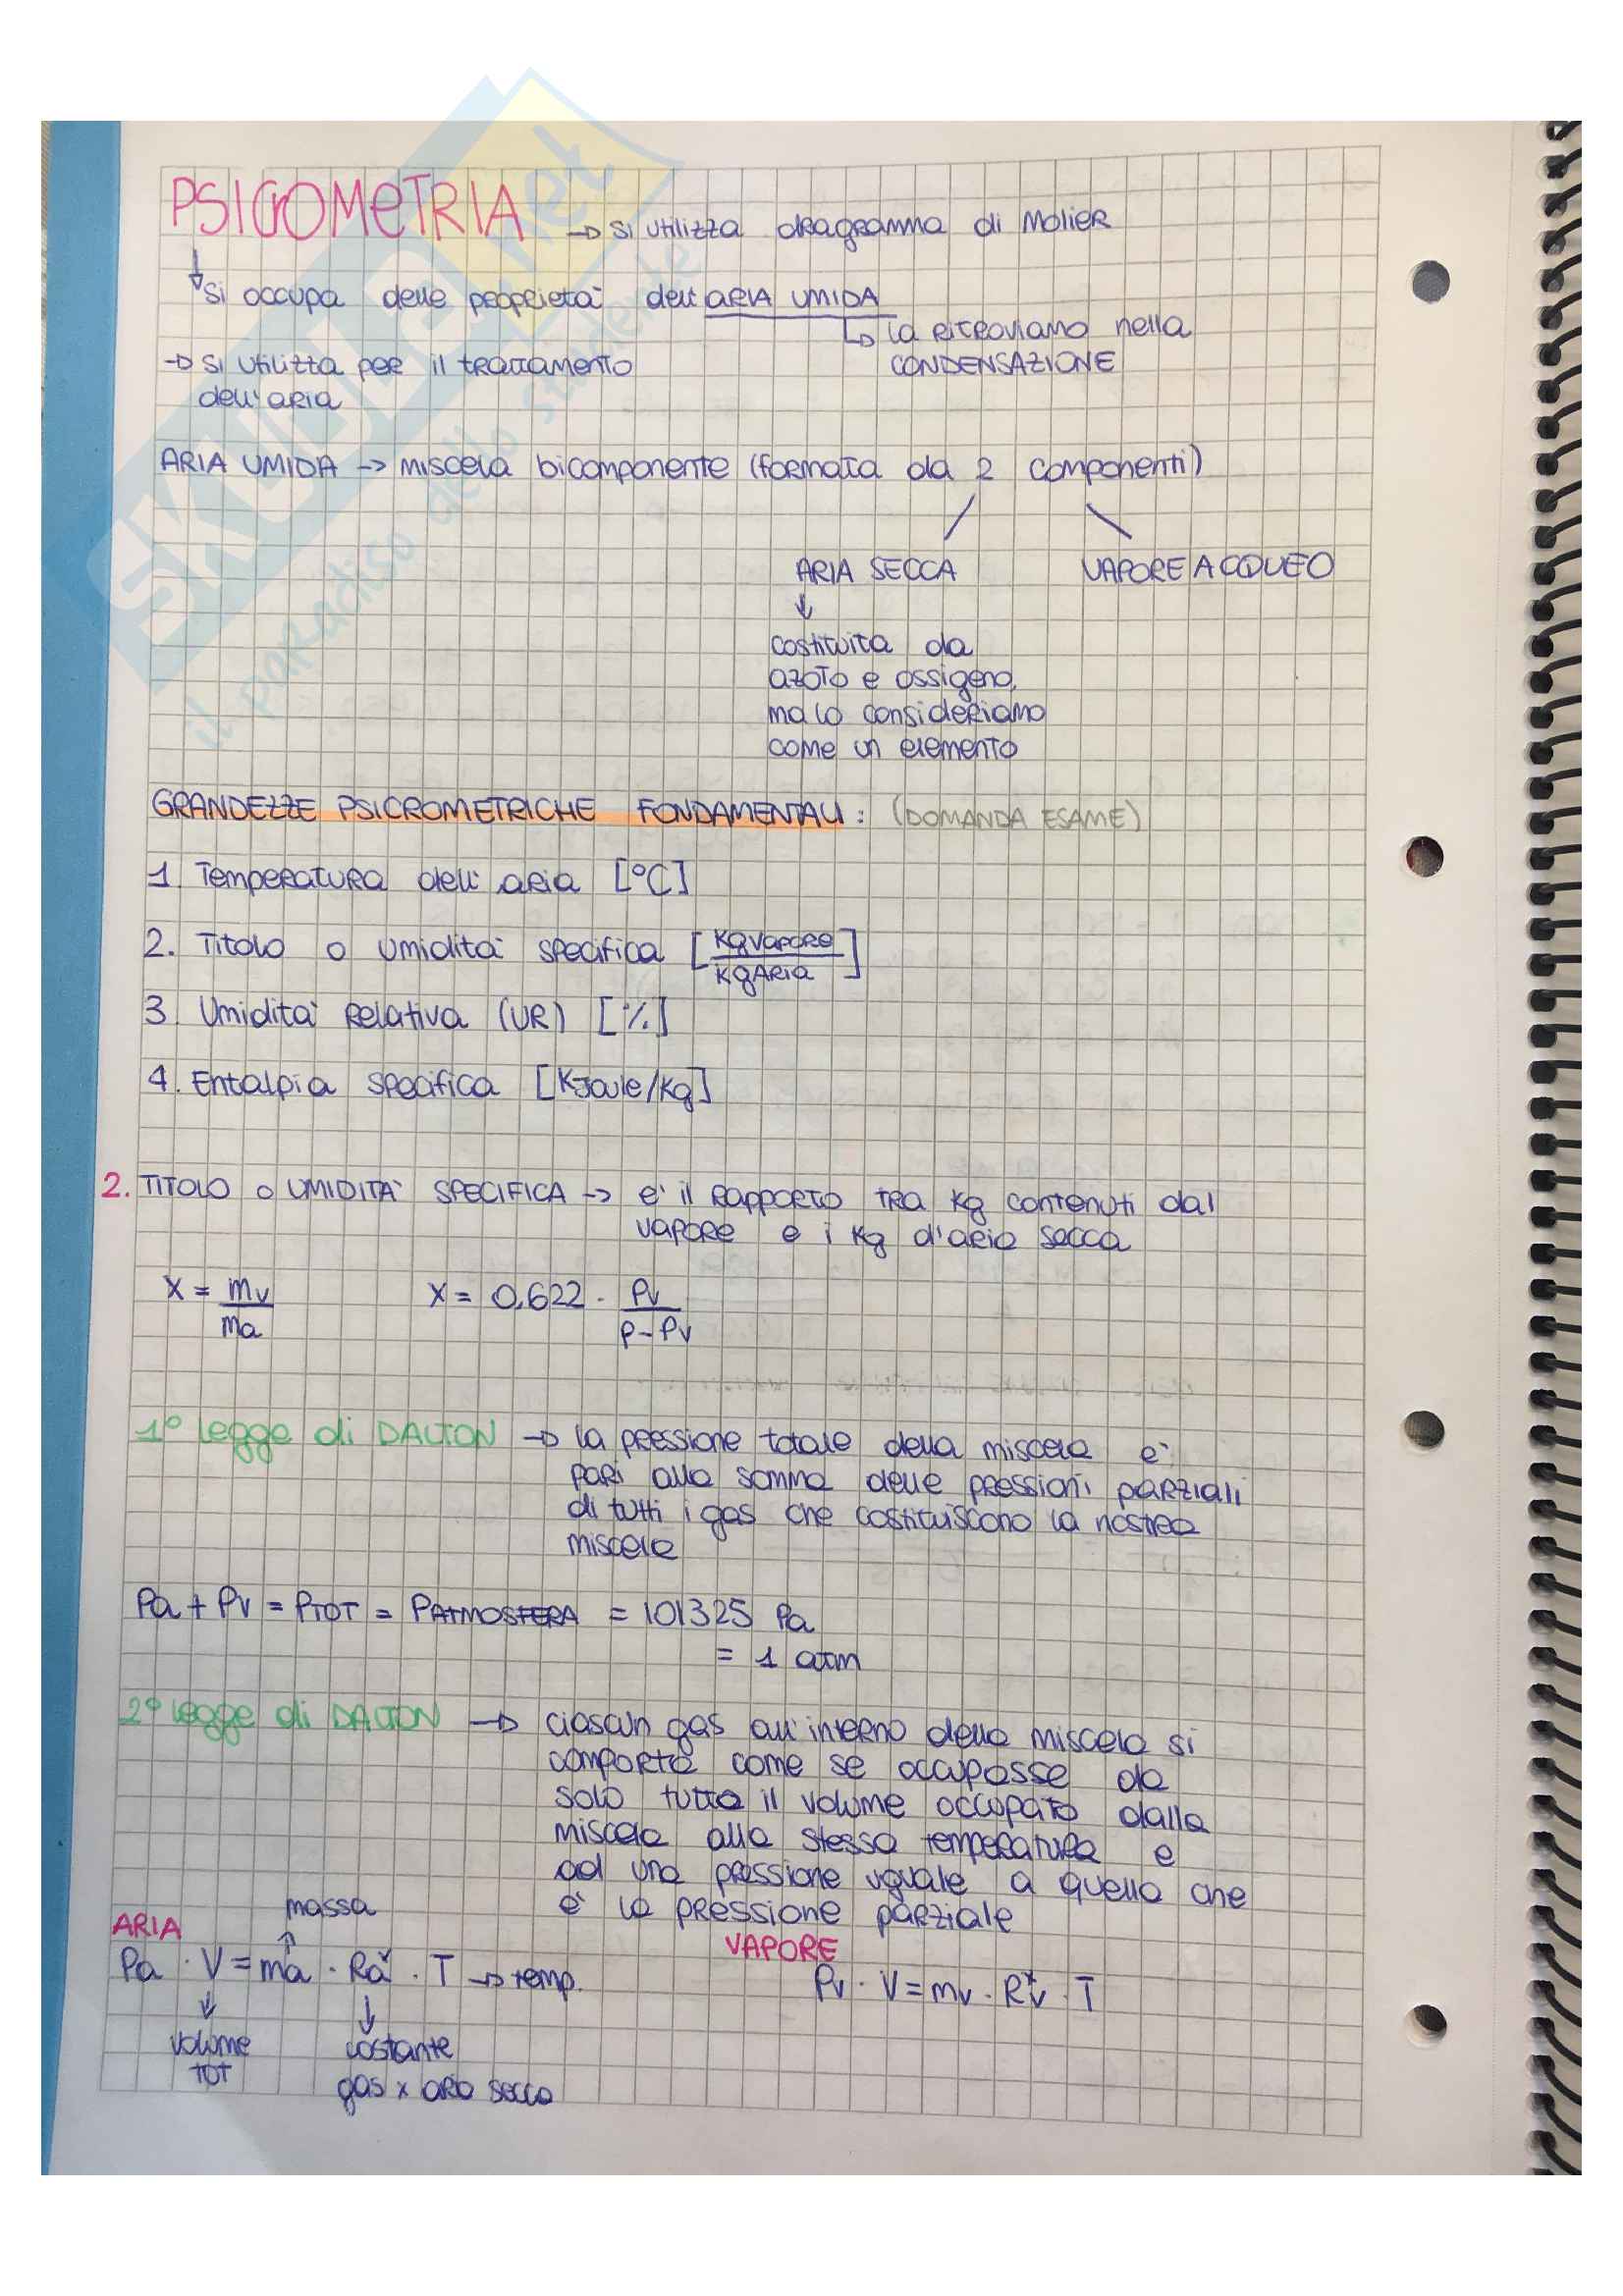 PSICROMETRIA → si utilizza diagramma di Molier
↓ si occupa delle proprietà dell'ARIA UMIDA
↳ la ritroviamo nella
→ si utilizza per il trattamento
CONDENSAZIONE
dell'aria
ARIA UMIDA → miscela bicomponente (formata da 2 componenti)
ARIA SECCA VAPORE ACQUEO
↓
costituita da
azoto e ossigeno,
ma lo consideriamo
come un elemento
GRANDEZZE PSICROMETRICHE FONDAMENTALI: (DOMANDA ESAME)
1. Temperatura dell'aria [°C]
2. Titolo o umidità specifica [Kg vapore / Kg ARIA]
3. Umidità Relativa (UR) [%]
4. Entalpia specifica [KJoule/Kg]
2. TITOLO o UMIDITA' SPECIFICA → e' il rapporto tra Kg contenuti dal
vapore e i Kg d'aria secca
X = mv / ma X = 0,622 · Pv / P-Pv
1° legge di DALTON → la pressione totale della miscela e'
pari alla somma delle pressioni parziali
di tutti i gas che costituiscono la nostra
miscela
Pa + Pv = PTOT = PATMOSFERA = 101325 Pa
= 1 atm
2° legge di DALTON → ciascun gas all'interno della miscela si
comporta come se occupasse da
solo tutto il volume occupato dalla
miscela alla stessa temperatura e
ad una pressione uguale a quella che
e' la pressione parziale
massa
ARIA
VAPORE
Pa · V = ma · Ra* · T → temp. Pv · V = mv · Rv* · T
↓ ↓
volume costante
TOT gas x aria secca
SKUOLA.net
il paradiso dello studente